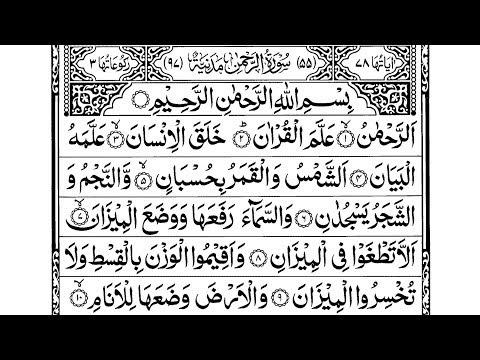 اٰیَاتُهَا ٧٨ (٥٥) سُوْرَةُ الرَّحْمٰنِ مَدَنِيَّةٌ (٩٧) رُكُوْعَاتُهَا ٣
بِسْمِ اللّٰهِ الرَّحْمٰنِ الرَّحِيْمِ
اَلرَّحْمٰنُ ۙ﴿١﴾ عَلَّمَ الْقُرْاٰنَ ؕ﴿٢﴾ خَلَقَ الْاِنْسَانَ ۙ﴿٣﴾ عَلَّمَهُ
الْبَيَانَ ﴿٤﴾ اَلشَّمْسُ وَالْقَمَرُ بِحُسْبَانٍ ۪﴿٥﴾ وَّالنَّجْمُ وَ
الشَّجَرُ يَسْجُدٰنِ ﴿٦﴾ وَالسَّمَآءَ رَفَعَهَا وَوَضَعَ الْمِيْزَانَ ۙ﴿٧﴾
اَلَّا تَطْغَوْا فِی الْمِيْزَانِ ﴿٨﴾ وَاَقِيْمُوا الْوَزْنَ بِالْقِسْطِ وَلَا
تُخْسِرُوا الْمِيْزَانَ ﴿٩﴾ وَالْاَرْضَ وَضَعَهَا لِلْاَنَامِ ۙ﴿١٠﴾